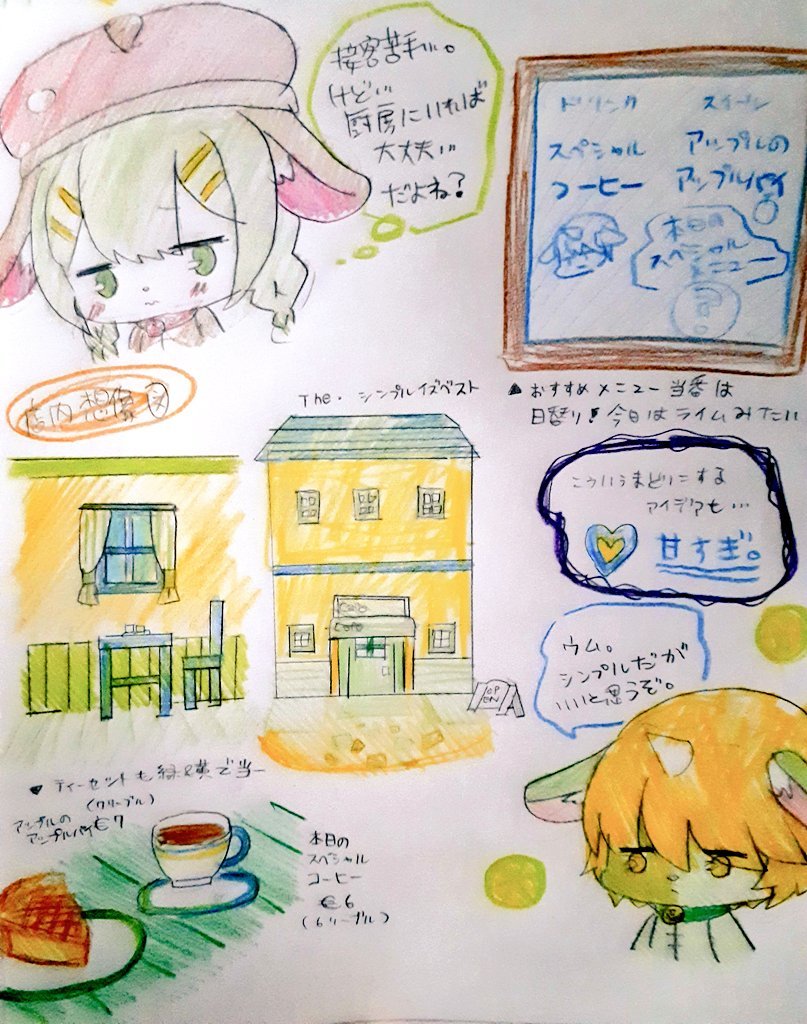 接客苦手…。
けど…
厨房にいれば
大丈夫…
だよね?
ドリンク
スイーツ
スペシャル
コーヒー
アップルの
アップルパイ
本日の
スペシャル
メニュー
店内想像図
The・シンプルイズベスト
▲おすすめメニュー当番は
日替り!今日はライムみたい
こういうまどりにする
アイデアも…
甘すぎ。
ウム。
シンプルだが
いいと思うぞ。
Cafe
OPEN
ティーセットも緑&黄で
アップルの
アップルパイ€7
本日の
スペシャル
コーヒー
€6
(6リーブル)